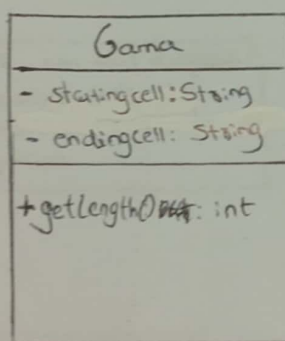 Gama
- startingcell: String
- endingcell: String
+ getLength() : int